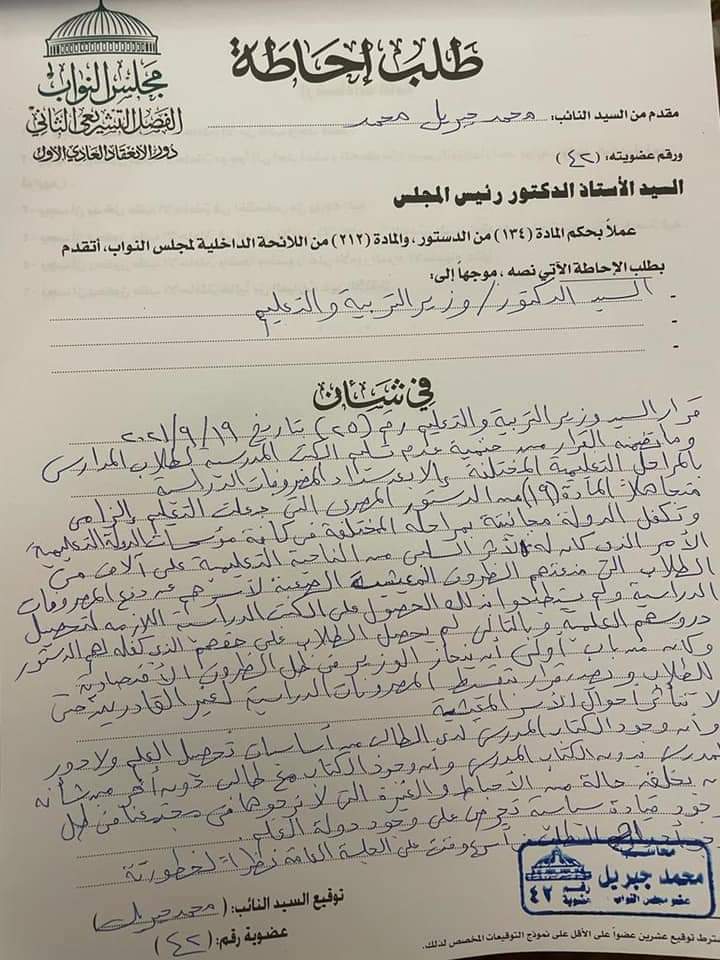 مجلس النواب
الفصل التشريعي الثاني
دور الانعقاد العادي الأول
طلب إحاطة
مقدم من السيد النائب: محمد جبريل محمد
ورقم عضويته: (٤٢)
السيد الأستاذ الدكتور رئيس المجلس
عملاً بحكم المادة (١٣٤) من الدستور، والمادة (٢١٢) من اللائحة الداخلية لمجلس النواب، أتقدم
بطلب الإحاطة الآتي نصه، موجهاً إلى:
- السيد الدكتور/ وزير التربية والتعليم
-
-
في شأن
قرار السيد وزير التربية والتعليم رقم (٢٥) بتاريخ ٢٠٢١/٩/١٩
وما تضمنه القرار من حتمية عدم تسليم الكتب المدرسية لطلاب المدارس
بالمراحل التعليمية المختلفة إلا بعد سداد المصروفات الدراسية
متجاهلاً المادة (١٩) من الدستور المصري التي جعلت التعليم إلزامي
وتكفل الدولة مجانيته بمراحله المختلفة في كافة مؤسسات الدولة التعليمية
الأمر الذي كان له الأثر السلبي من الناحية التعليمية على آلاف من
الطلاب التي منعتهم الظروف المعيشية الصعبة لأسرهم عن دفع المصروفات
الدراسية ولم يستطيعوا بذلك الحصول على الكتب الدراسية اللازمة لتحصيل
دروسهم العلمية وبالتالي لم يحصل الطلاب على حقهم الذي كفله لهم الدستور
وكان من باب أولى أن ينحاز الوزير في ظل الظروف الاقتصادية
للطلاب ويصدر قرار بتقسيط المصروفات الدراسية لغير القادرين حتى
لا تتأثر أحوال الأسر المعيشية
وأن وجود الكتاب المدرسي لدى الطالب من أساسيات تحصيل العلم ولا دور
للمدرس بدون الكتاب المدرسي وأن وجود الكتاب مع طالب دون آخر من شأنه
أن يخلق حالة من الإحباط والغيرة التي لا نرجوها في مجتمعنا في ظل
وجود قيادة سياسية تحرص على وجود دولة العلم
الطلب في أسرع وقت على الجلسة العامة نظراً لخطورته
توقيع السيد النائب: (محمد جبريل)
عضوية رقم: (٤٢)
محاسب
محمد جبريل
عضو مجلس النواب
رقم عضوية ٤٢
يشترط توقيع عشرين عضواً على الأقل على نموذج التوقيعات المخصص لذلك.